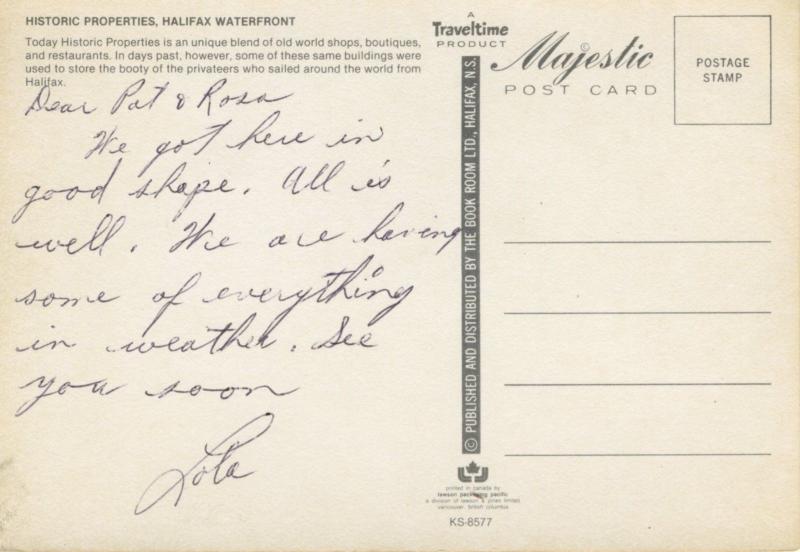 HISTORIC PROPERTIES, HALIFAX WATERFRONT
Today Historic Properties is an unique blend of old world shops, boutiques,
and restaurants. In days past, however, some of these same buildings were
used to store the booty of the privateers who sailed around the world from
Halifax.
Dear Pat & Rosa
We got here in
good shape. All is
well. We are having
some of everything
in weather. See
you soon
Lola
© PUBLISHED AND DISTRIBUTED BY THE BOOK ROOM LTD., HALIFAX, N.S.
A
Traveltime
PRODUCT
Majestic
POST CARD
POSTAGE
STAMP
printed in canada by
lawson packaging pacific
a division of lawson & jones limited,
vancouver, british columbia
KS-8577